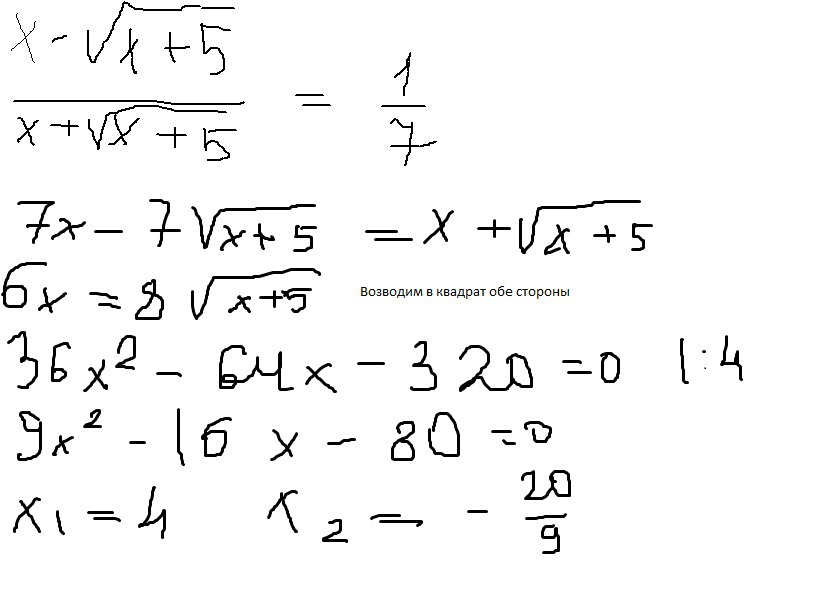 x - √x + 5
x + √x + 5 = 1/7
7x - 7 √x + 5 = x + √x + 5
6x = 8 √x + 5 Возводим в квадрат обе стороны
36x² - 64x - 320 = 0 |:4
9x² - 16x - 80 = 0
x₁ = 4 x₂ = - 20/9